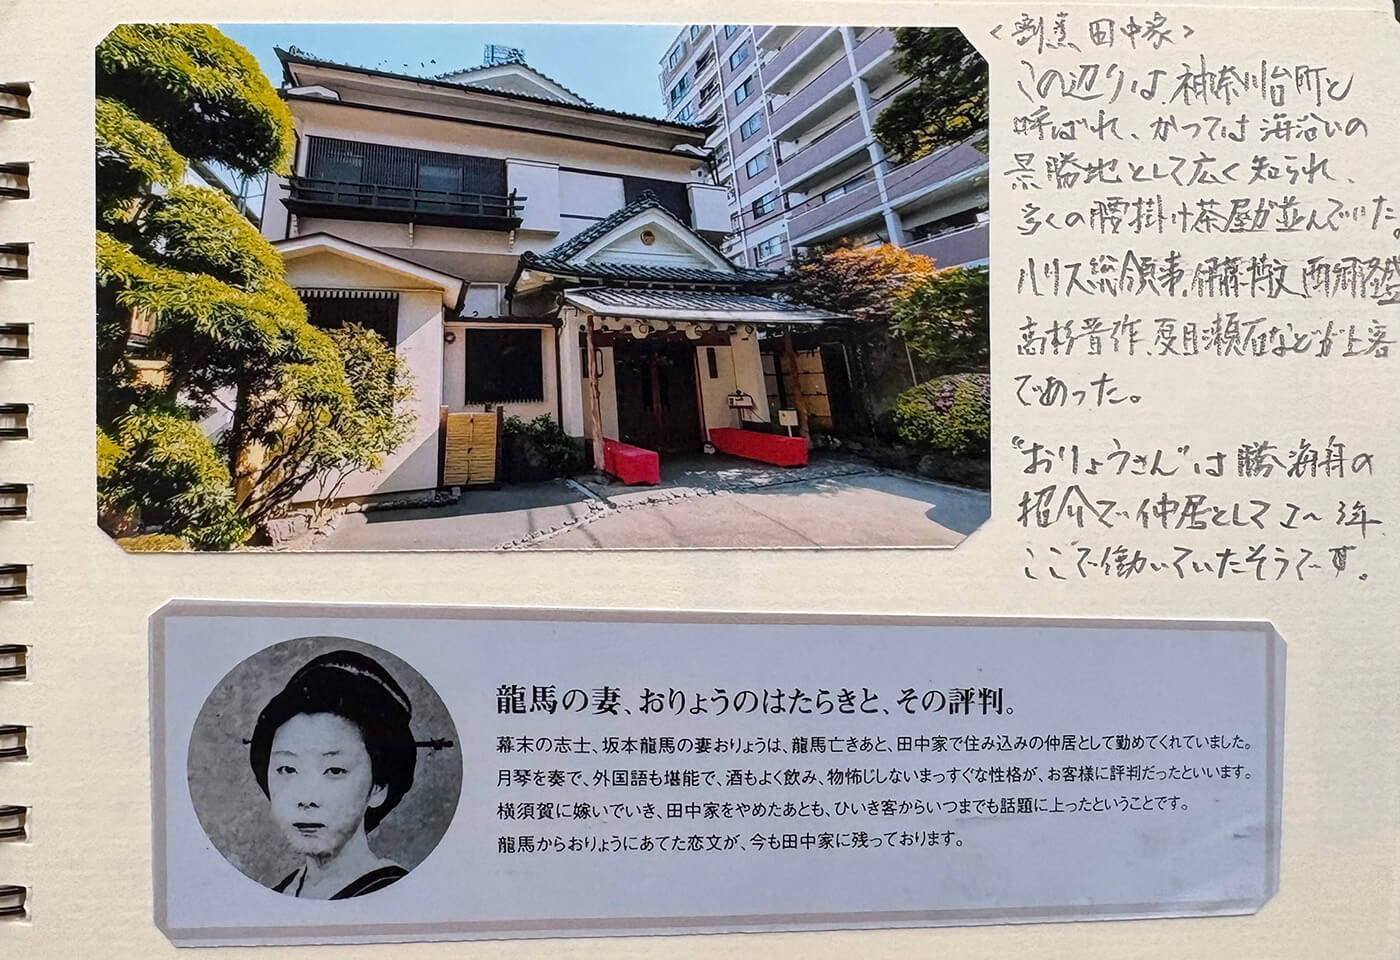 <割烹 田中家>
この辺りは、神奈川台町と
呼ばれ、かつては海沿いの
景勝地として広く知られ、
多くの腰掛け茶屋が並んでいた。
ハリス総領事、伊藤博文、西郷隆盛
高杉晋作、夏目瀬石などが上客
であった。
"おりょうさん"は勝海舟の
紹介で仲居として2〜3年
ここで働いていたそうです。
龍馬の妻、おりょうのはたらきと、その評判。
幕末の志士、坂本龍馬の妻おりょうは、龍馬亡きあと、田中家で住み込みの仲居として勤めてくれていました。
月琴を奏で、外国語も堪能で、酒もよく飲み、物怖じしないまっすぐな性格が、お客様に評判だったといいます。
横須賀に嫁いでいき、田中家をやめたあとも、ひいき客からいつまでも話題に上ったということです。
龍馬からおりょうにあてた恋文が、今も田中家に残っております。